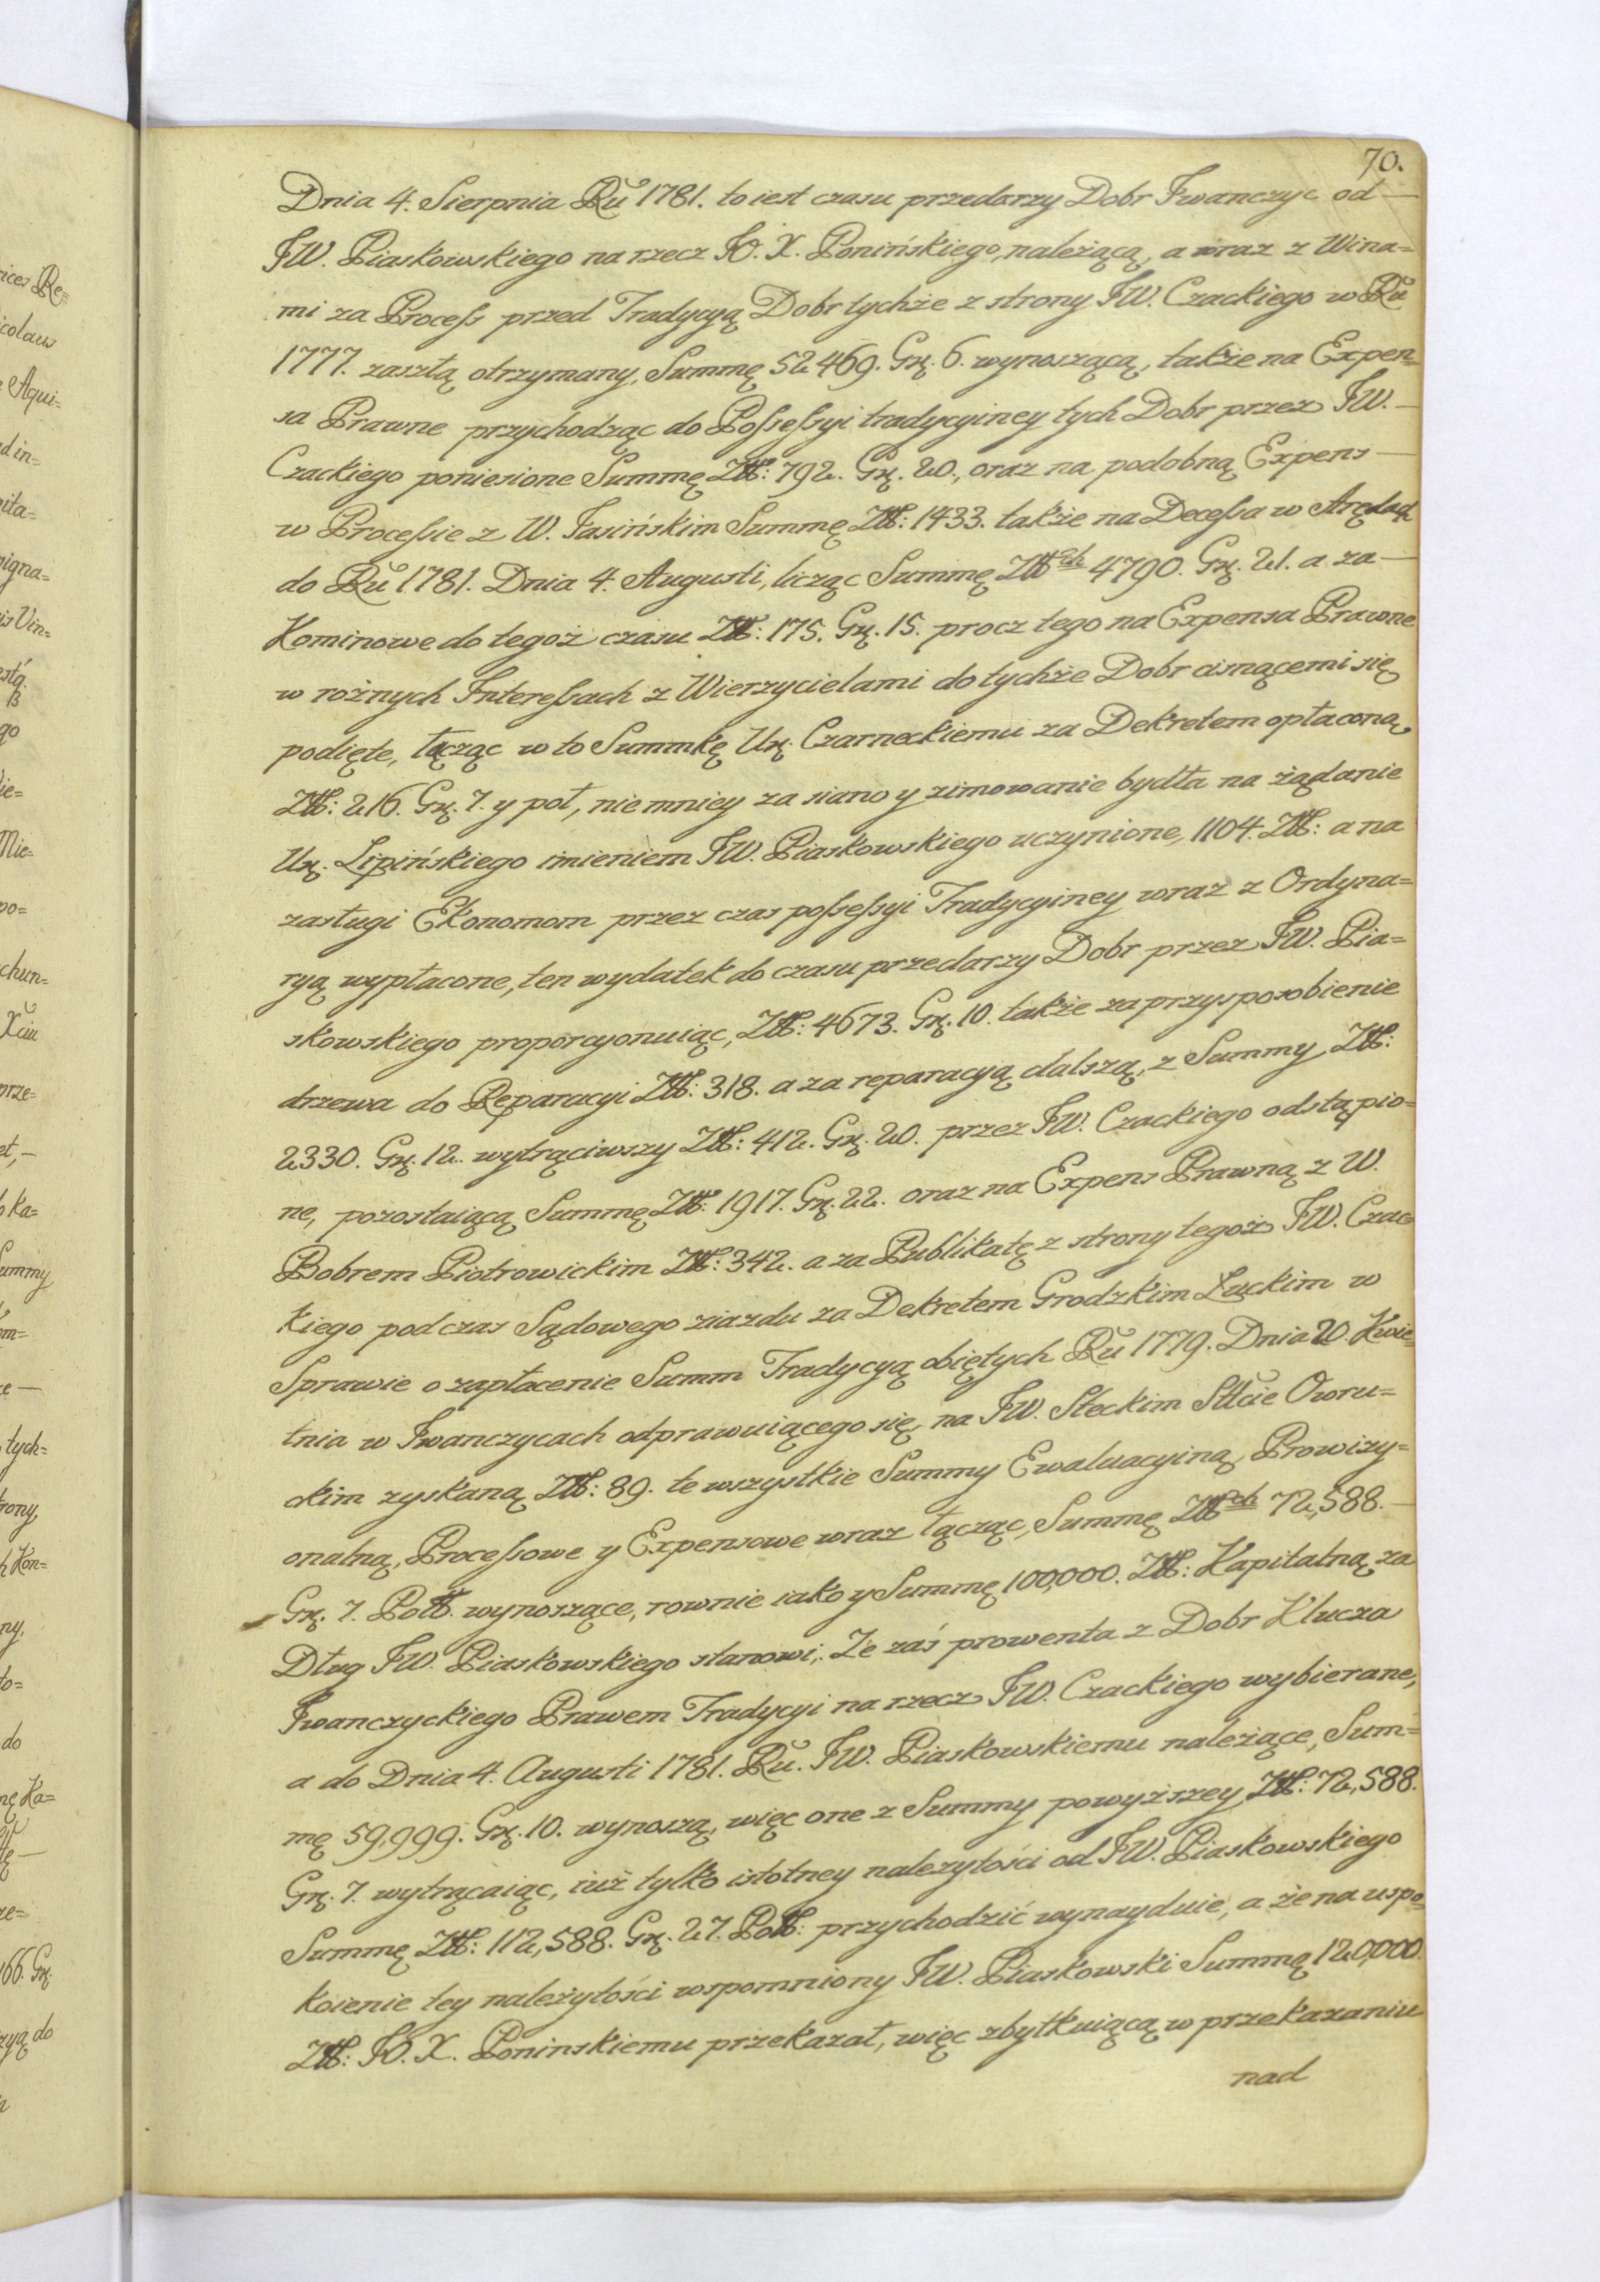 70.
Dnia 4. Sierpnia Ru 1781. to iest czasu przedarzy Dobr Iwanczyc od —
JW. Piaskowskiego na rzecz JO. X. Ponińskiego, należącą, a wraz z Wina=
mi za Process przed Tradycyą Dobr tychże z strony JW. Czackiego w Ru
1777. zaszłą otrzymany, Summę 52469. Gr. 6. wynoszącą, także na Expen=
sa Prawne przychodząc do Possessyi tradycyiney tych Dobr przez JW. —
Czackiego poniesione Summę Złł: 792. Gr. 20., oraz na podobną Expens —
w Processie z W. Jasińskim Summę Złł: 1433. także na Decessa w Arędach
do Ru 1781. Dnia 4. Augusti, licząc Summę Złłch 4790. Gr. 21. a za —
Kominowe do tegoż czasu Złł: 175. Gr. 15. procz tego na Expensa Prawne
w rożnych Interessach z Wierzycielami do tychże Dobr cisnącemi się
podięte, łącząc w to Summkę Ur. Czarneckiemu za Dekretem opłaconą
Złł: 216. Gr. 7. y poł, niemniey za siano y zimowanie bydła na żądanie
Ur. Lipińskiego imieniem JW. Piaskowskiego uczynione, 1104. Złł: a na
zasługi Ekonomom przez czas possessyi Tradycyiney wraz z Ordyna=
ryą wypłacone, ten wydatek do czasu przedarzy Dobr przez JW. Pia=
skowskiego proporcyonuiąc, Złł: 4673. Gr. 10. także za przysposobienie
drzewa do Reparacyi Złł: 318. a za reparacyą dalszą, z Summy Złł:
2330. Gr. 12. wytrąciwszy Złł: 412. Gr. 20. przez JW. Czackiego odstąpio=
ne, pozostaiącą Summę Złł: 1917. Gr. 22. oraz na Expens Prawną z W.
Bobrem Piotrowickim Złł: 342. a za Publikatę z strony tegoż JW. Czac=
kiego podczas Sądowego ziazdu za Dekretem Grodzkim Łuckim w
Sprawie o zapłacenie Summ Tradycyą obiętych Ru 1779. Dnia 20. Kwie=
tnia w Iwanczycach odprawuiącego się, na JW. Steckim Stłcie Owru=
ckim zyskaną Złł: 89. te wszystkie Summy Ewaluacyiną, Prowizy=
onalną, Processowe y Expensowe wraz łącząc, Summę Złłch 72,588. —
Gr. 7. Połł. wynoszące, rownie iako y Summę 100,000. Złł: Kapitalną za
Dług JW. Piaskowskiego stanowi; Ze zaś prowenta z Dobr Klucza
Iwanczyckiego Prawem Tradycyi na rzecz JW. Czackiego wybierane,
a do Dnia 4. Augusti 1781. Ru. JW. Piaskowskiemu należące, Sum=
mę 59,999. Gr. 10. wynoszą, więc one z Summy powyższey Złł: 72,588.
Gr. 7. wytrącaiąc, iuż tylko istotney nalezytości od JW. Piaskowskiego
Summę Złł: 112,588. Gr. 27. Połł: przychodzić wynayduie, a że na uspo=
koienie tey należytości wspomniony JW. Piaskowski Summę 120,000.
Złł: JO. X. Poninskiemu przekazał, więc zbytkuiącą w przekazaniu
nad